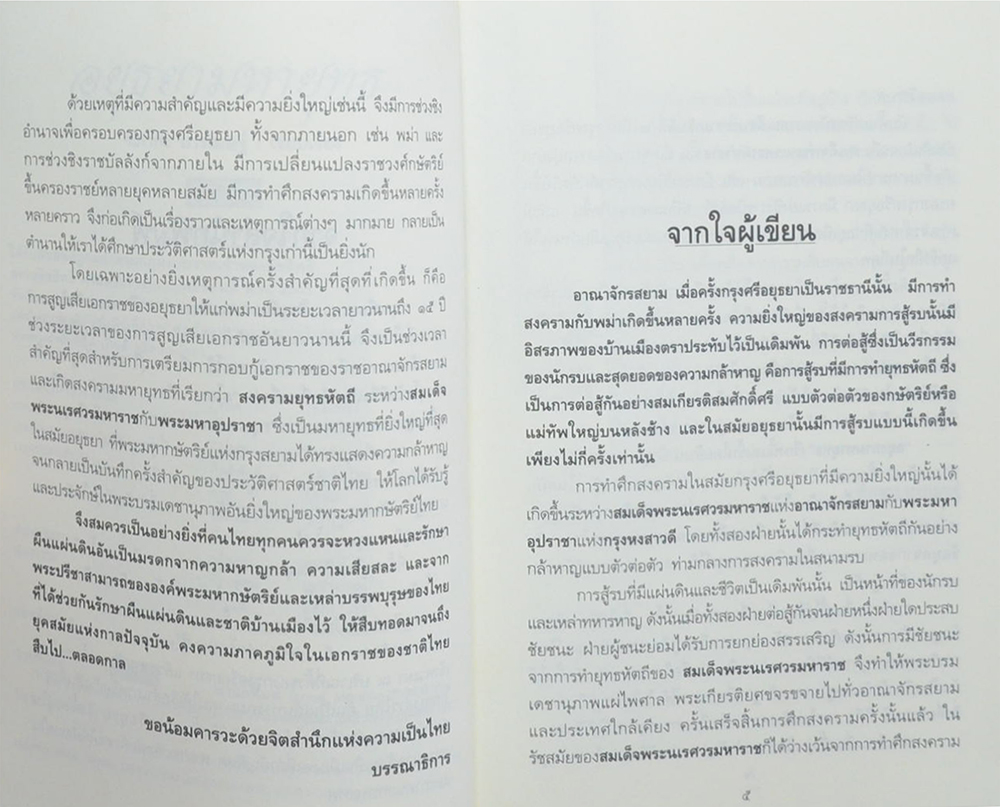 ด้วยเหตุที่มีความสำคัญและมีความยิ่งใหญ่เช่นนี้ จึงมีการช่วงชิง
อำนาจเพื่อครอบครองกรุงศรีอยุธยา ทั้งจากภายนอก เช่น พม่า และ
การช่วงชิงราชบัลลังก์จากภายใน มีการเปลี่ยนแปลงราชวงศ์กษัตริย์
ขึ้นครองราชย์หลายยุคหลายสมัย มีการทำศึกสงครามเกิดขึ้นหลายครั้ง
หลายคราว จึงก่อเกิดเป็นเรื่องราวและเหตุการณ์ต่างๆ มากมาย กลายเป็น
ตำนานให้เราได้ศึกษาประวัติศาสตร์แห่งกรุงเก่านี้เป็นยิ่งนัก
โดยเฉพาะอย่างยิ่งเหตุการณ์ครั้งสำคัญที่สุดที่เกิดขึ้น ก็คือ
การสูญเสียเอกราชของอยุธยาให้แก่พม่าเป็นระยะเวลายาวนานถึง ๑๕ ปี
ช่วงระยะเวลาของการสูญเสียเอกราชอันยาวนานนี้ จึงเป็นช่วงเวลา
สำคัญที่สุดสำหรับการเตรียมการกอบกู้เอกราชของราชอาณาจักรสยาม
และเกิดสงครามมหายุทธที่เรียกว่า สงครามยุทธหัตถี ระหว่างสมเด็จ
พระนเรศวรมหาราชกับพระมหาอุปราชา ซึ่งเป็นมหายุทธที่ยิ่งใหญ่ที่สุด
ในสมัยอยุธยา ที่พระมหากษัตริย์แห่งกรุงสยามได้ทรงแสดงความกล้าหาญ
จนกลายเป็นบันทึกครั้งสำคัญของประวัติศาสตร์ชาติไทย ให้โลกได้รับรู้
และประจักษ์ในพระบรมเดชานุภาพอันยิ่งใหญ่ของพระมหากษัตริย์ไทย
จึงสมควรเป็นอย่างยิ่งที่คนไทยทุกคนควรจะหวงแหนและรักษา
ผืนแผ่นดินอันเป็นมรดกจากความหาญกล้า ความเสียสละ และจาก
พระปรีชาสามารถขององค์พระมหากษัตริย์และเหล่าบรรพบุรุษของไทย
ที่ได้ช่วยกันรักษาผืนแผ่นดินและชาติบ้านเมืองไว้ ให้สืบทอดมาจนถึง
ยุคสมัยแห่งกาลปัจจุบัน คงความภาคภูมิใจในเอกราชของชาติไทย
สืบไป...ตลอดกาล
ขอน้อมคารวะด้วยจิตสำนึกแห่งความเป็นไทย
บรรณาธิการ
จากใจผู้เขียน
อาณาจักรสยาม เมื่อครั้งกรุงศรีอยุธยาเป็นราชธานีนั้น มีการทำ
สงครามกับพม่าเกิดขึ้นหลายครั้ง ความยิ่งใหญ่ของสงครามการสู้รบนั้นมี
อิสรภาพของบ้านเมืองตราประทับไว้เป็นเดิมพัน การต่อสู้ซึ่งเป็นวีรกรรม
ของนักรบและสุดยอดของความกล้าหาญ คือการสู้รบที่มีการทำยุทธหัตถี ซึ่ง
เป็นการต่อสู้กันอย่างสมเกียรติสมศักดิ์ศรี แบบตัวต่อตัวของกษัตริย์หรือ
แม่ทัพใหญ่บนหลังช้าง และในสมัยอยุธยานั้นมีการสู้รบแบบนี้เกิดขึ้น
เพียงไม่กี่ครั้งเท่านั้น
การทำศึกสงครามในสมัยกรุงศรีอยุธยาที่มีความยิ่งใหญ่นั้นได้
เกิดขึ้นระหว่างสมเด็จพระนเรศวรมหาราชแห่งอาณาจักรสยามกับพระมหา
อุปราชาแห่งกรุงหงสาวดี โดยทั้งสองฝ่ายนั้นได้กระทำยุทธหัตถีกันอย่าง
กล้าหาญแบบตัวต่อตัว ท่ามกลางการสงครามในสนามรบ
การสู้รบที่มีแผ่นดินและชีวิตเป็นเดิมพันนั้น เป็นหน้าที่ของนักรบ
และเหล่าทหารหาญ ดังนั้นเมื่อทั้งสองฝ่ายต่อสู้กันจนฝ่ายหนึ่งฝ่ายใดประสบ
ชัยชนะ ฝ่ายผู้ชนะย่อมได้รับการยกย่องสรรเสริญ ดังนั้นการมีชัยชนะ
จากการทำยุทธหัตถีของ สมเด็จพระนเรศวรมหาราช จึงทำให้พระบรม
เดชานุภาพแผ่ไพศาล พระเกียรติยศขจรขจายไปทั่วอาณาจักรสยาม
และประเทศใกล้เคียง ครั้นเสร็จสิ้นการศึกสงครามครั้งนั้นแล้ว ใน
รัชสมัยของสมเด็จพระนเรศวรมหาราชก็ได้ว่างเว้นจากการทำศึกสงคราม
๕